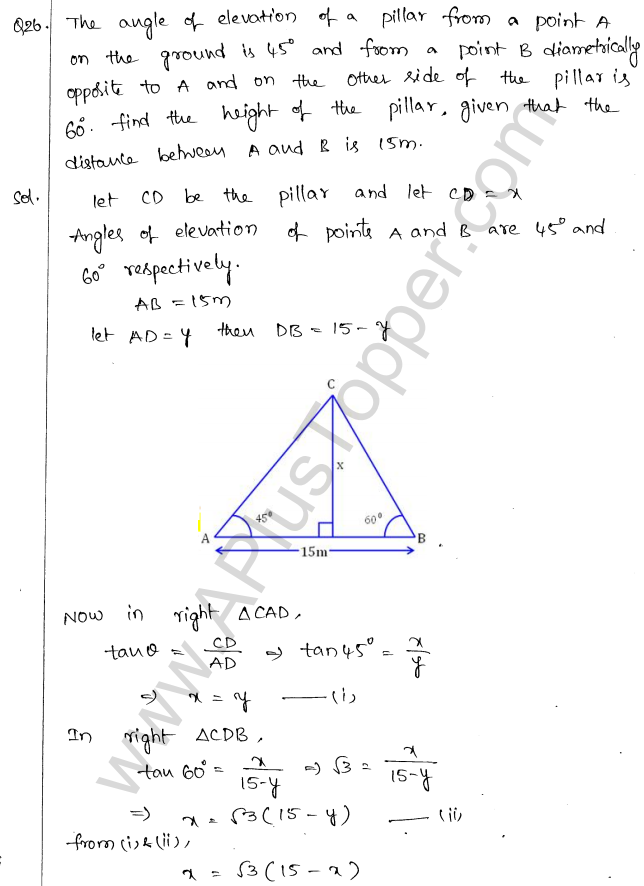 Q26. The angle of elevation of a pillar from a point A
on the ground is 45° and from a point B diametrically
opposite to A and on the other side of the pillar is
60°. find the height of the pillar, given that the
distance between A and B is 15m.
Sol. let CD be the pillar and let CD = x
Angles of elevation of points A and B are 45° and
60° respectively.
AB = 15m
let AD = y then DB = 15 - y
C
x
45° 60°
A B
15m
Now in right △CAD,
tanθ = CD/AD ⇒ tan45° = x/y
⇒ x = y —— (i)
In right △CDB,
tan 60° = x/15-y ⇒ √3 = x/15-y
⇒ x = √3(15 - y) —— (ii)
from (i) & (ii),
x = √3(15 - x)
www.APlusTopper.com